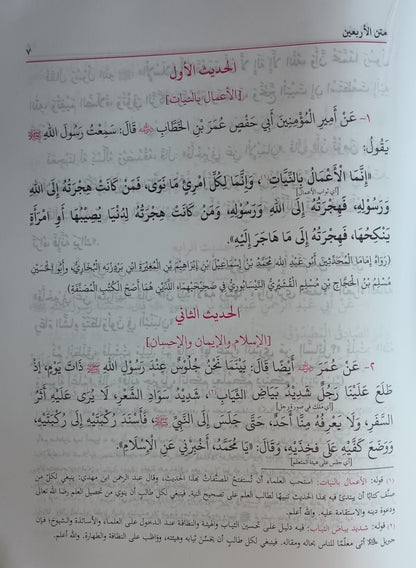 متن الأربعين
٧
الحديث الأول
[الأعمال بالنيات]
١- عَنْ أَمِيرِ الْمُؤْمِنِينَ أَبِي حَفْصٍ عُمَرَ بْنِ الْخَطَّابِ ﵁ قَالَ: سَمِعْتُ رَسُولَ اللهِ ﷺ
يَقُولُ:
«إِنَّمَا الْأَعْمَالُ بِالنِّيَّاتِ(١)، وَإِنَّمَا لِكُلِّ امْرِئٍ مَا نَوَى، فَمَنْ كَانَتْ هِجْرَتُهُ إِلَى اللهِ
[أي ثواب الأعمال]
وَرَسُولِهِ، فَهِجْرَتُهُ إِلَى اللهِ وَرَسُولِهِ، وَمَنْ كَانَتْ هِجْرَتُهُ لِدُنْيَا يُصِيبُهَا أَوِ امْرَأَةٍ
يَنْكِحُهَا، فَهِجْرَتُهُ إِلَى مَا هَاجَرَ إِلَيْهِ».
(رَوَاهُ إِمَامَا الْمُحَدِّثِينَ أَبُو عَبْدِ اللهِ مُحَمَّدُ بْنُ إِسْمَاعِيلَ بْنِ إِبْرَاهِيمَ بْنِ الْمُغِيرَةِ ابْنِ بَرْدِزْبَهْ الْبُخَارِيُّ، وَأَبُو الْحُسَيْنِ
مُسْلِمُ بْنُ الْحَجَّاجِ بْنِ مُسْلِمٍ الْقُشَيْرِيُّ النَّيْسَابُورِيُّ فِي صَحِيحَيْهِمَا، اللَّذَيْنِ هُمَا أَصَحُّ الْكُتُبِ الْمُصَنَّفَةِ)
الحديث الثاني
[الإسلام والإيمان والإحسان]
٢- عَنْ عُمَرَ ﵁ أَيْضًا قَالَ: بَيْنَمَا نَحْنُ جُلُوسٌ عِنْدَ رَسُولِ اللهِ ﷺ ذَاتَ يَوْمٍ، إِذْ
طَلَعَ عَلَيْنَا رَجُلٌ شَدِيدُ بَيَاضِ الثِّيَابِ(٢)، شَدِيدُ سَوَادِ الشَّعَرِ، لَا يُرَى عَلَيْهِ أَثَرُ
[أي ملك في صورة رجل]
السَّفَرِ، وَلَا يَعْرِفُهُ مِنَّا أَحَدٌ، حَتَّى جَلَسَ إِلَى النَّبِيِّ ﷺ، فَأَسْنَدَ رُكْبَتَيْهِ إِلَى رُكْبَتَيْهِ،
وَوَضَعَ كَفَّيْهِ عَلَى فَخِذَيْهِ، وَقَالَ: «يَا مُحَمَّدُ، أَخْبِرْنِي عَنِ الْإِسْلَامِ».
[أي جلس على هيئة المتعلم]
(١) قوله: الأعمال بالنيات: استحب العلماء أن تستفتح المصنفات بهذا الحديث، وقال عبد الرحمن ابن مهدي: ينبغي لكل من
صنف كتابًا أن يبتدئ فيه بهذا الحديث تنبيهًا لطالب العلم على تصحيح النية. فينبغي لكل طالب أن ينوي من تحصيل العلم رضا الله تعالى
ودعوة دينه والاستقامة عليه. والله أعلم.
(٢) قوله: شديد بياض الثياب: فيه دليل على تحسين الثياب والهيئة والنظافة عند الدخول على العلماء والأساتذة والشيوخ؛ فإن
جبريل ﵇ أتى معلمًا للناس بحاله ومقاله. فينبغي لكل طالب أن يحسّن ثيابه وهيئته، ويواظب على النظافة والطهارة. والله أعلم.